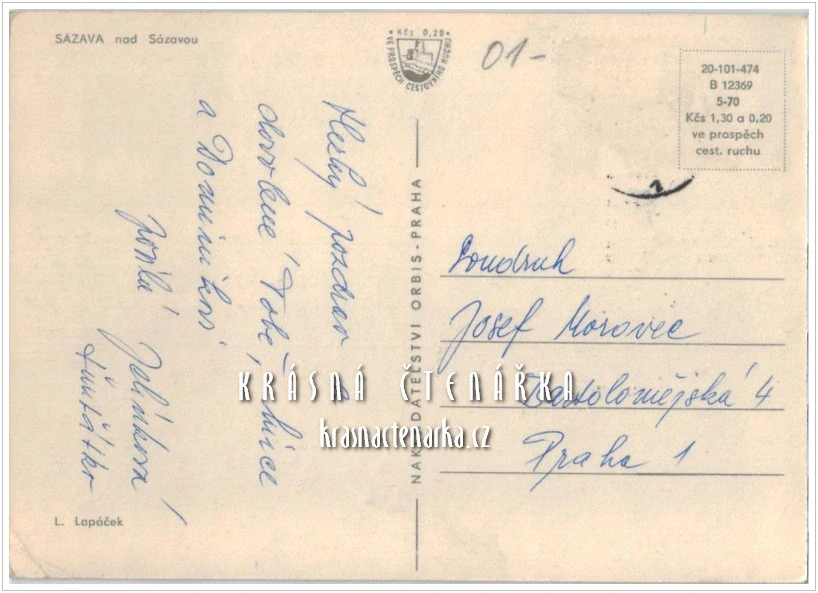 SÁZAVA nad Sázavou
Kčs 0,20
VE PROSPĚCH CESTOVNÍHO RUCHU
01-
20-101-474
B 12369
5-70
Kčs 1,30 a 0,20
ve prospěch
cest. ruchu
1
Hezký pozdrav z
dovolené Tobě,
a Dominikovi
posílá Jelínková
NAKLADATELSTVÍ ORBIS - PRAHA
Soudruh
Josef Moravec
Bartolomějská 4
Praha 1
KRÁSNÁ ČTENÁŘKA
krasnactenarka.cz
L. Lapáček